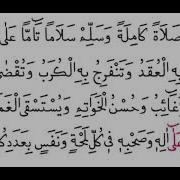 صَلَاةً كَامِلَةً وَسَلِّمْ سَلَامًا تَامًّا عَلَى
بِهِ الْعُقَدُ وَتَنْفَرِجُ بِهِ الْكُرَبُ وَتُقْضَى
غَائِبُ وَحُسْنُ الْخَوَاتِمِ وَيُسْتَسْقَى الْغَمَ
عَلَى اٰلِهِ وَصَحْبِهِ فِي كُلِّ لَمْحَةٍ وَنَفَسٍ بِعَدَدِ كُ